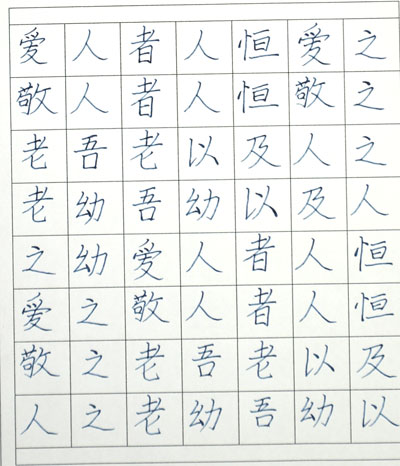 爱人者人恒爱之
敬人者人恒敬之
老吾老以及人之
老幼吾幼以及人
之幼爱人者人恒
爱之敬人者人恒
敬之老吾老以及
人之老幼吾幼以